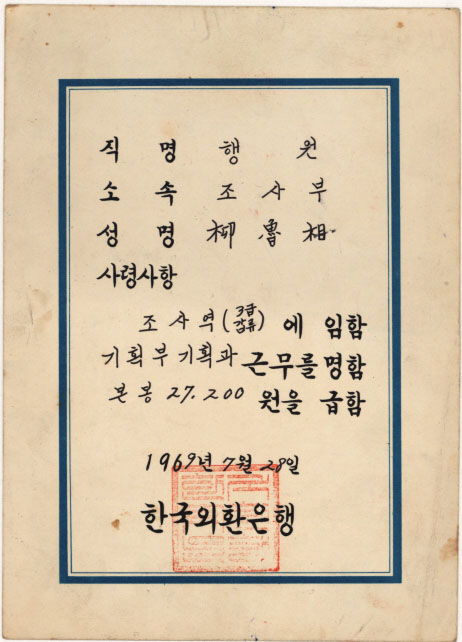 직 명 행 원
소 속 조 사 부
성 명 柳 魯 相
사령사항
조 사 역 (3급 갑류) 에 임함
기획부 기획과 근무를 명함
본 봉 27.200 원을 급함
1969년 7월 28일
한국외환은행